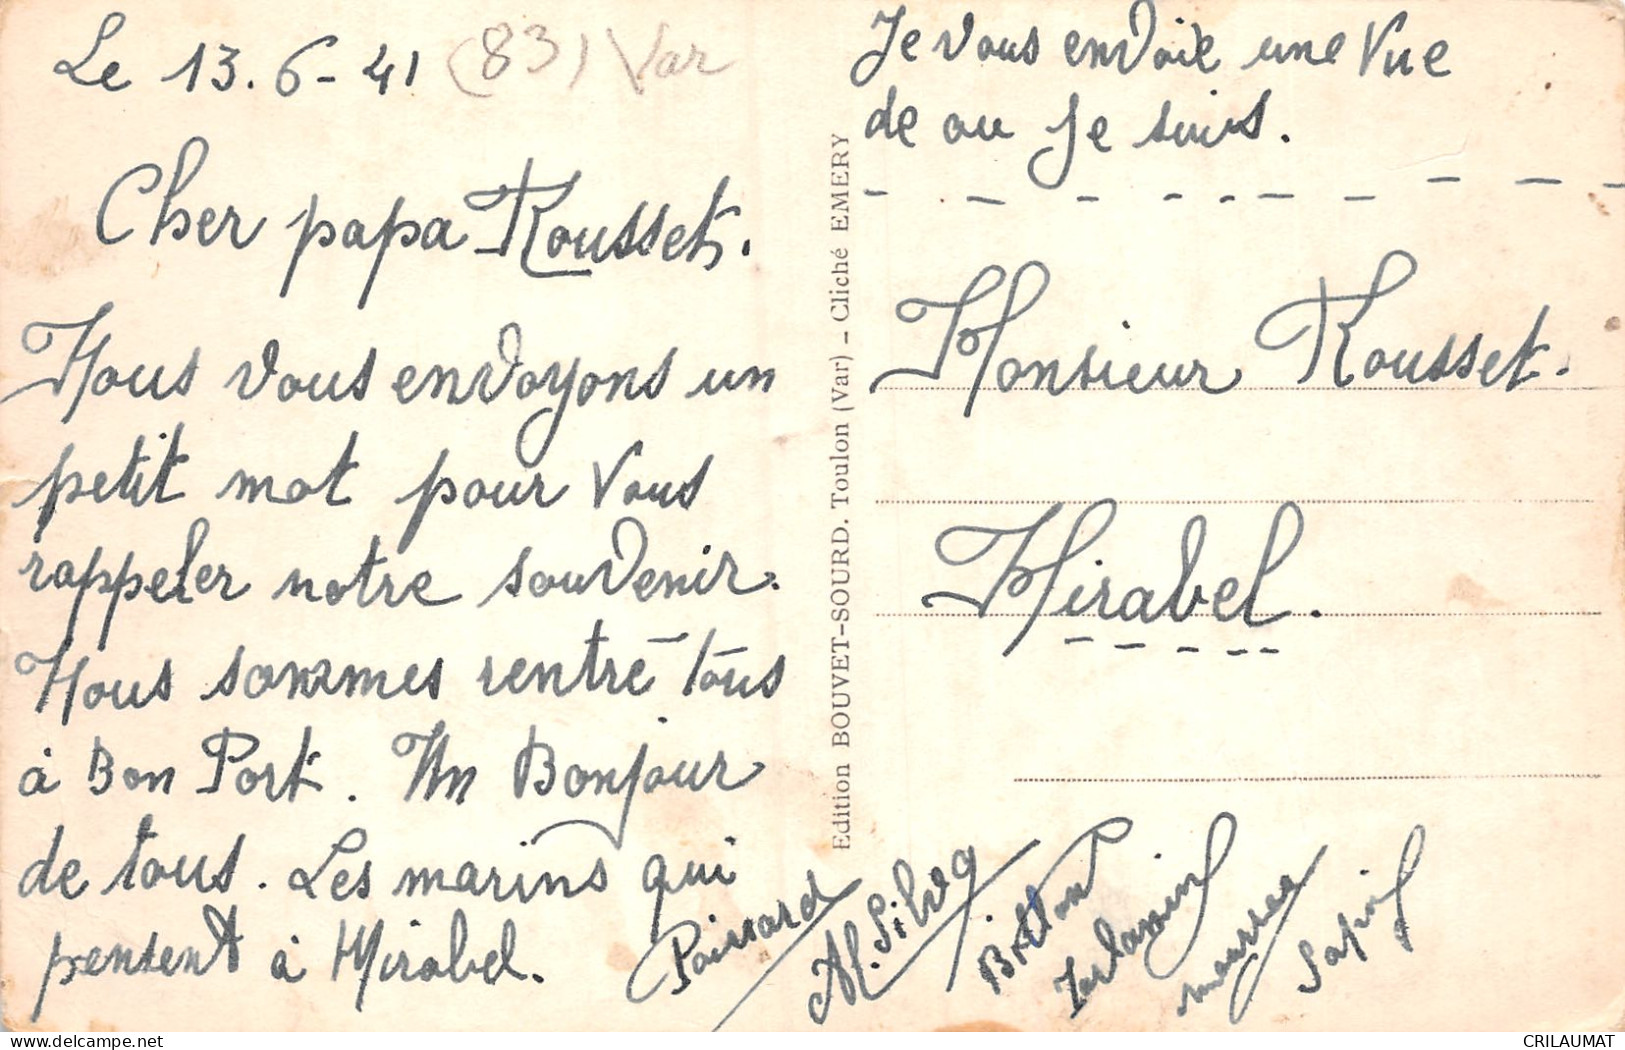 Le 13.6-41 (83) Var
Cher papa Rousset.
Nous vous envoyons un
petit mot pour vous
rappeler notre souvenir.
Nous sommes rentré tous
à Bon Port. Un Bonjour
de tous. Les marins qui
pensent à Mirabel.
Je vous envoie une vue
de ou je suis.
Edition BOUVET-SOURD. Toulon (Var) - Cliché EMERY
Monsieur Rousset.
Mirabel.
Poissard
M. Silva
CRILAUMAT